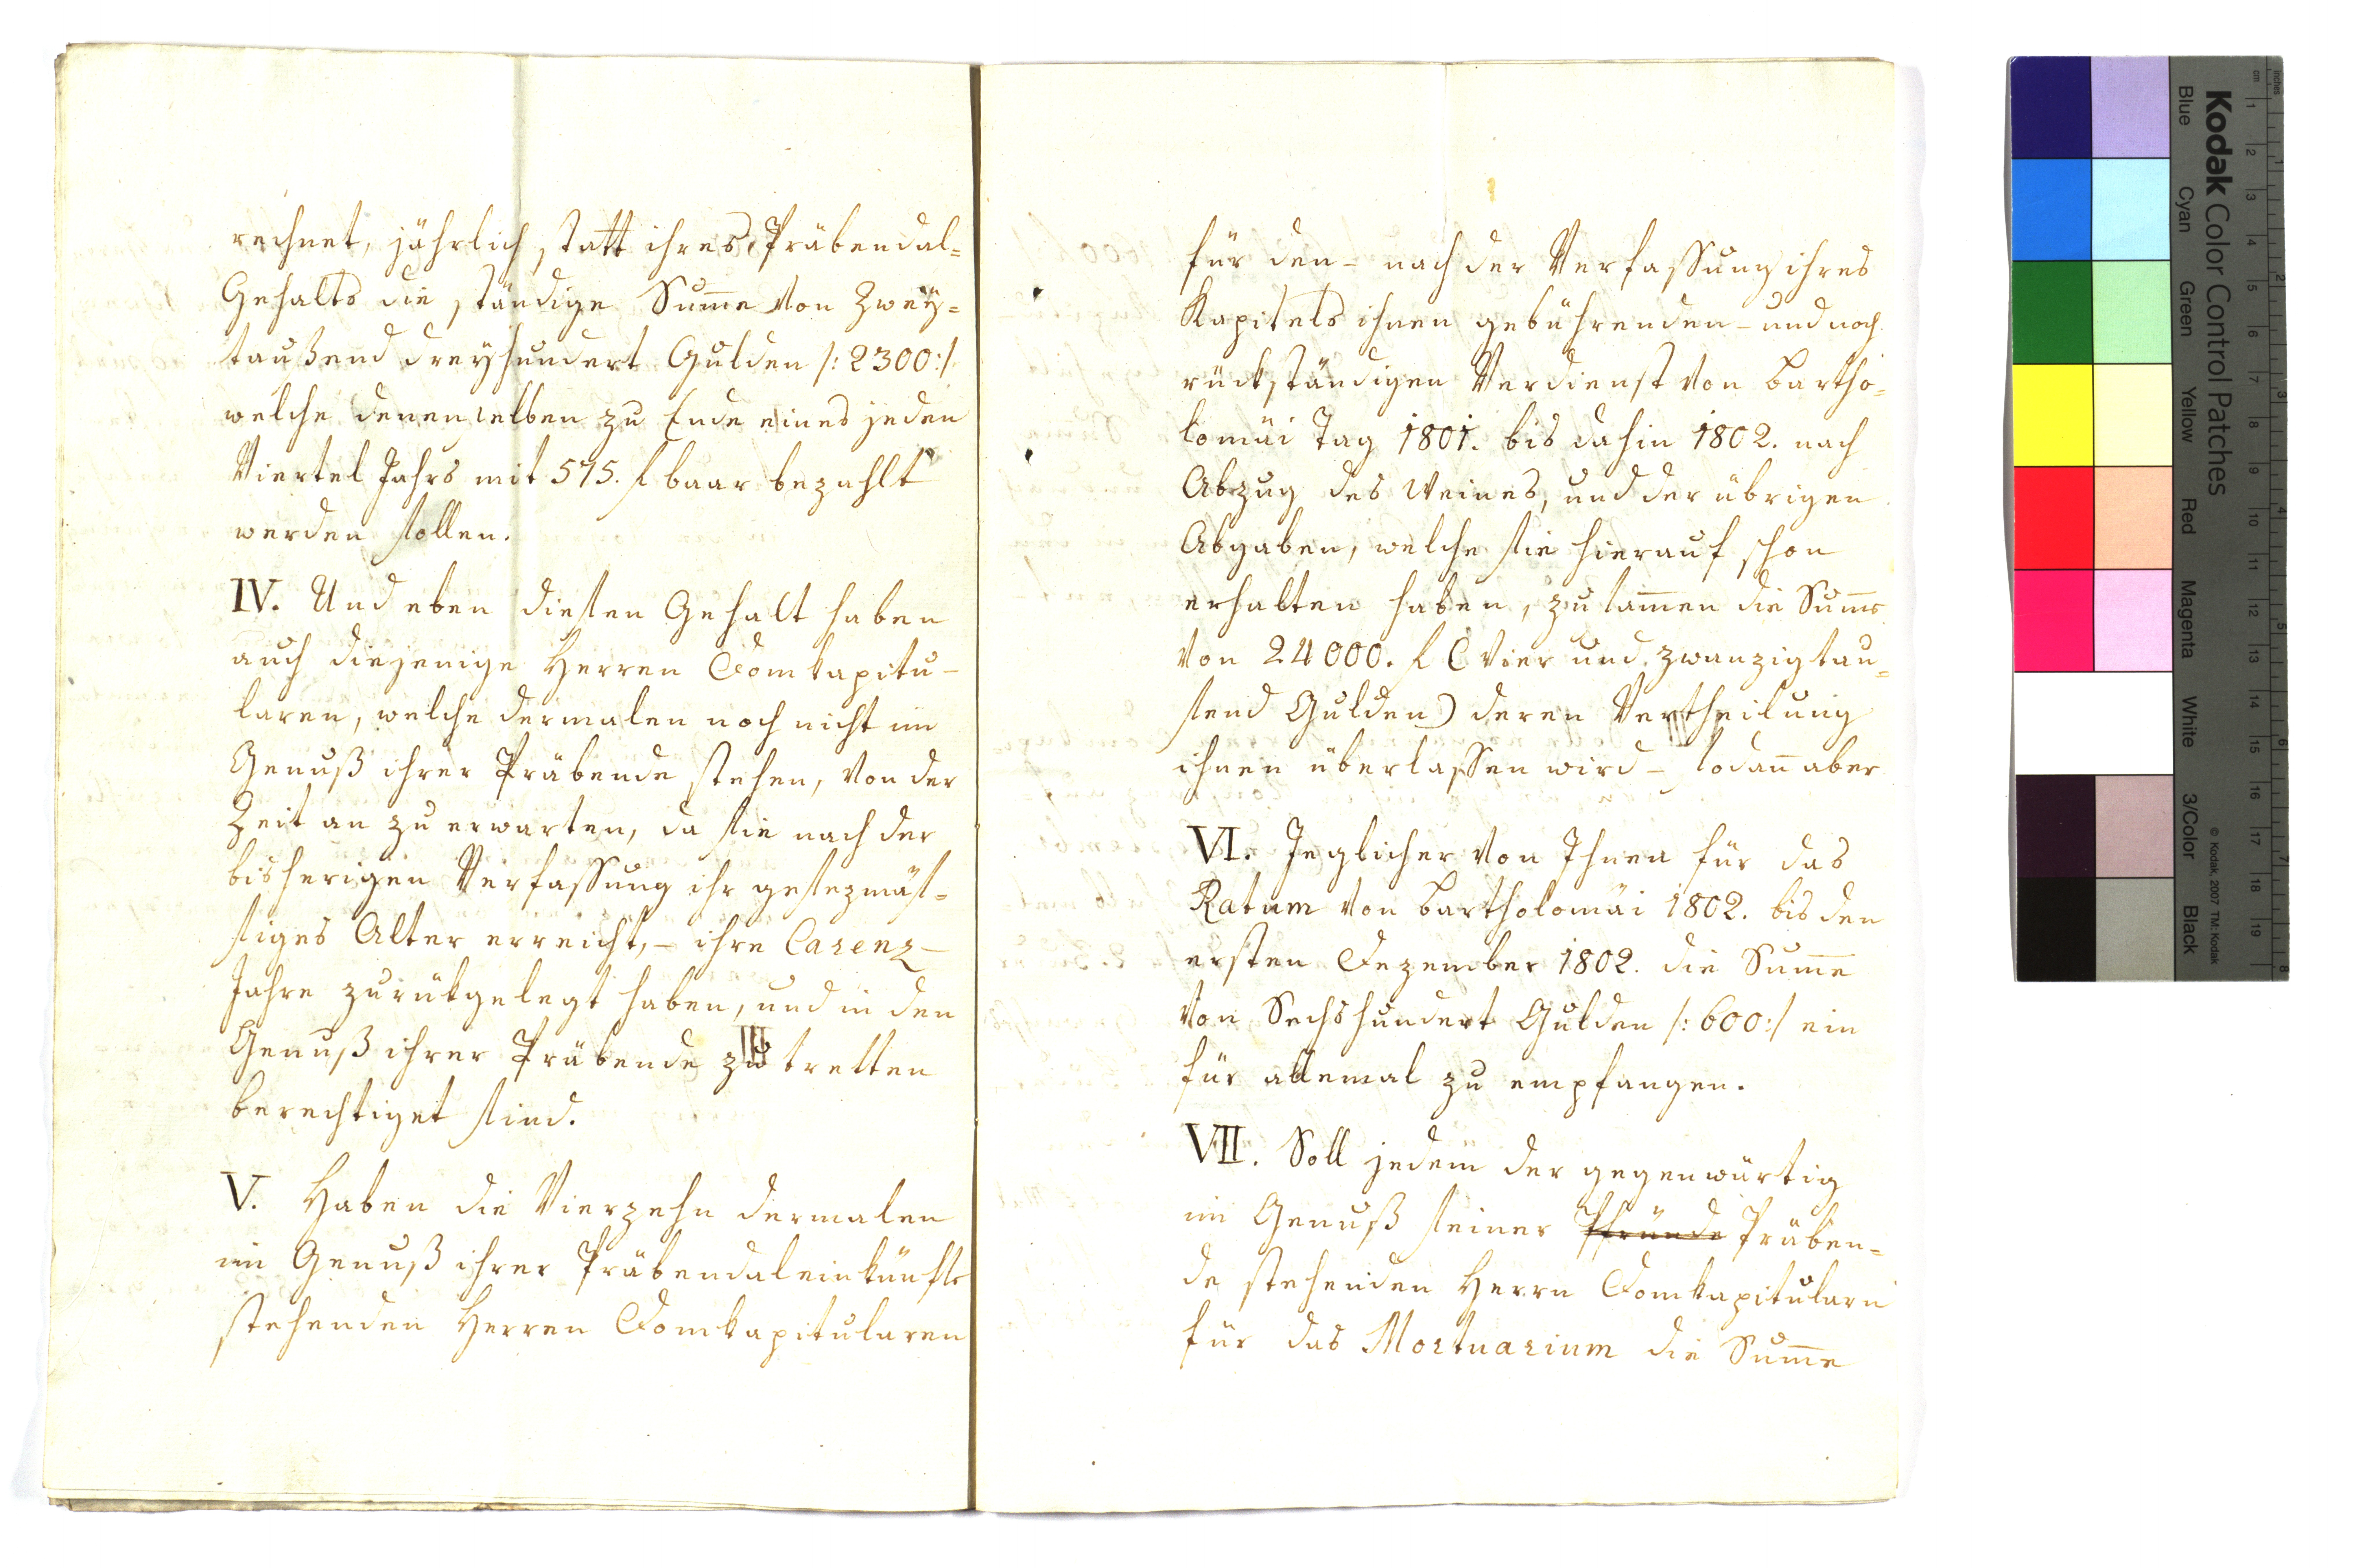 rechnet, jährlich statt ihres Präbendal=
Gehalts die ständige Sum̄e von Zweÿ=
taußend dreÿhundert Gulden /: 2300 :/
welche denenselben zu Ende eines jeden
Viertel Jahrs mit 575. f baar bezahlt
werden sollen.
IV. Und eben diesen Gehalt haben
auch diejenige Herren Domkapitu-
laren, welche dermalen noch nicht im
Genuß ihrer Präbende stehen, von der
Zeit an zu erwarten, da sie nach der
bisherigen Verfassung ihr gesezmäs=
siges Alter erreicht, - ihre Carenz-
Jahre zurükgelegt haben, und in den
Genuß ihrer Präbende zu tretten
berechtiget sind.
V. Haben die Vierzehn dermalen
im Genuß ihrer Präbendaleinkünfte
stehenden Herren Domkapitularen
für den - nach der Verfassung ihres
Kapitels ihnen gebührenden - und noch
rückständigen Verdienst von Bartho=
lomäi Tag 1801. bis dahin 1802. nach
Abzug des Weines, und der übrigen
Abgaben, welche sie hierauf schon
erhalten haben, zusam̄en die Sum̄e
von 24000. f (Vier und zwanzigtau=
send Gulden) deren Vertheilung
ihnen überlassen wird - sodan̄ aber
VI. Jeglicher von Ihnen für das
Ratum von Bartholomäi 1802. bis den
ersten Dezember 1802. die Sum̄e
von Sechshundert Gulden /: 600 :/ ein
für allemal zu empfangen.
VII. Soll jedem der gegenwärtig
im Genuß seiner Pfründe Präben=
de stehenden Herrn Domkapitularn
für das Mortuarium die Sum̄e
Kodak Color Control Patches
© Kodak, 2007 TM: Kodak
Blue Cyan Green Yellow Red Magenta White 3/Color Black
inches 1 2 3 4 5 6 7 8
cm 1 2 3 4 5 6 7 8 9 10 11 12 13 14 15 16 17 18 19